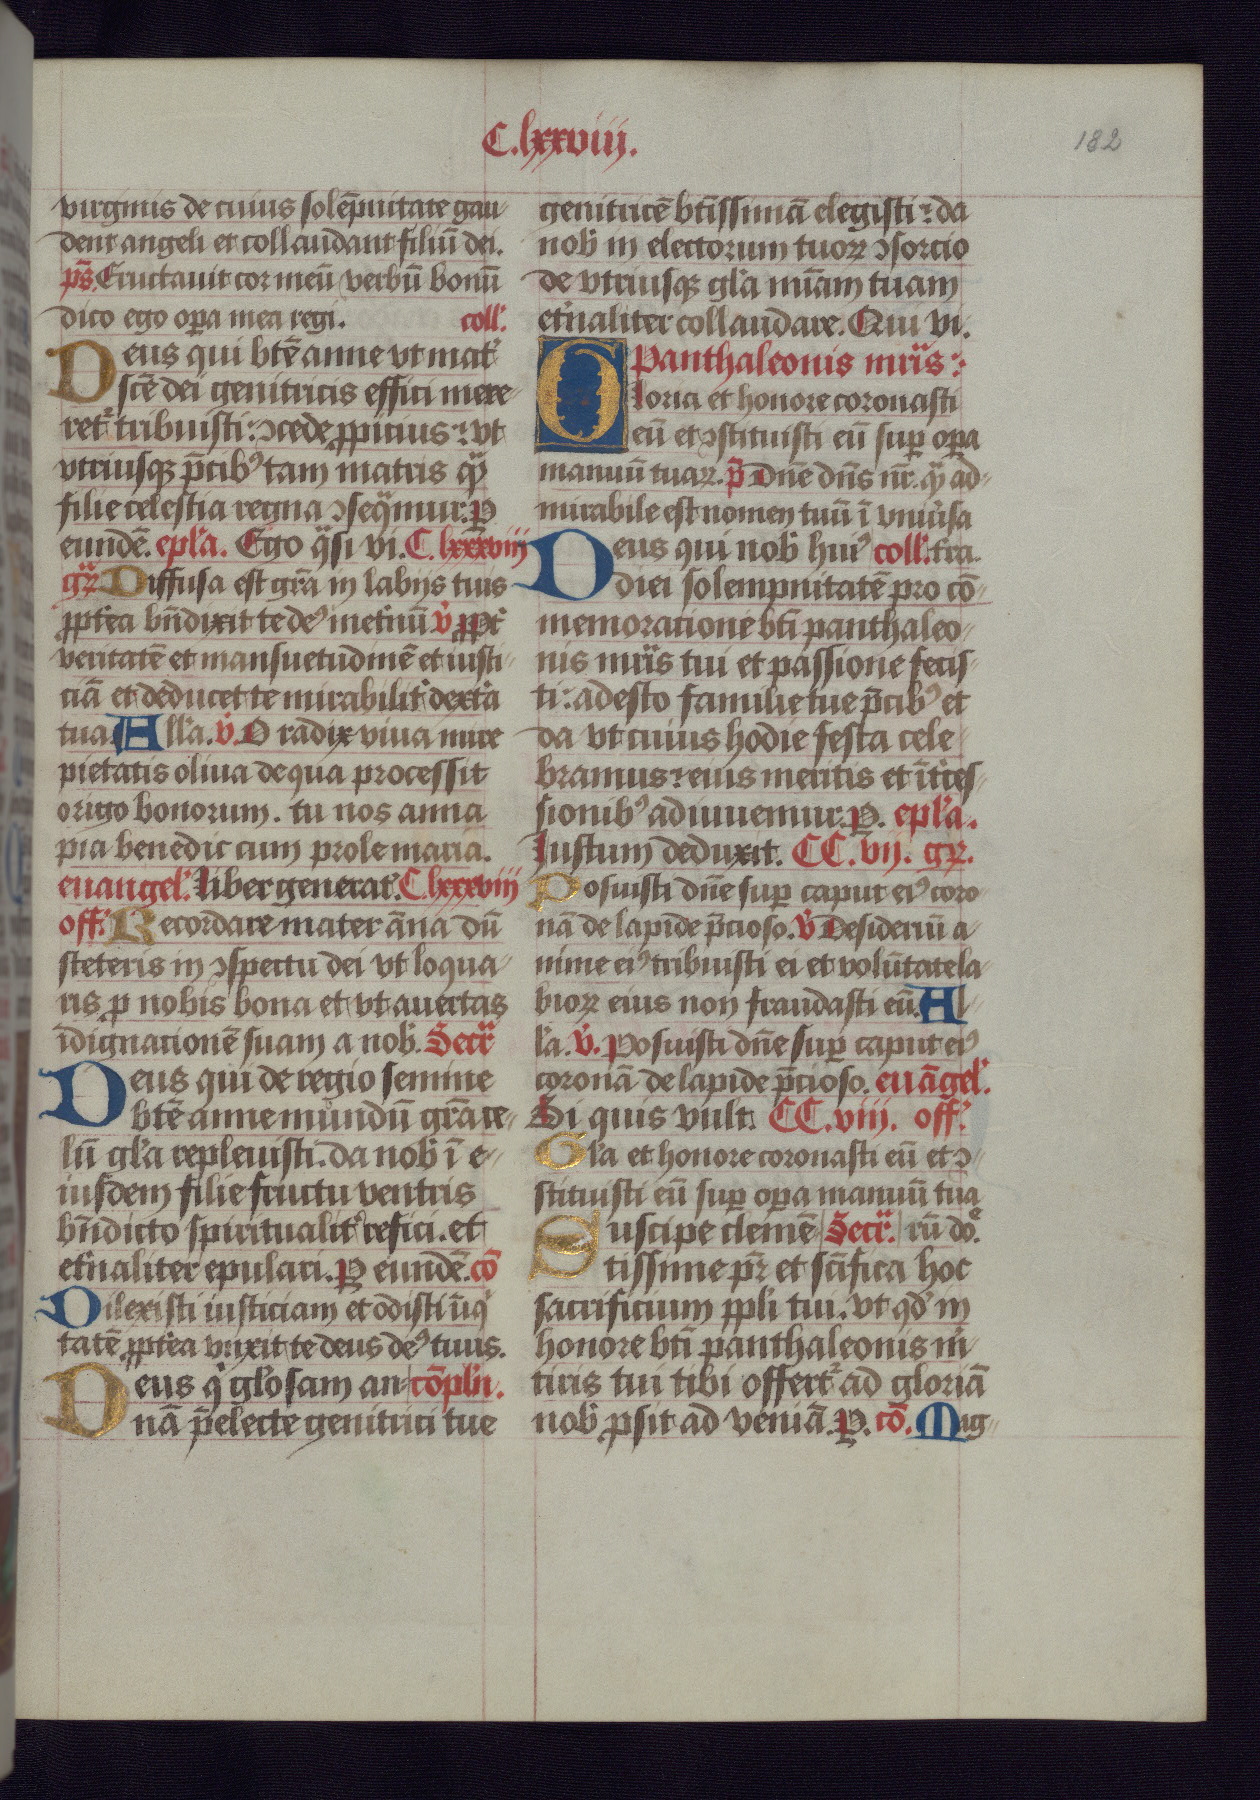 C.lxxviii.
182
virginis de cuius solēpnitate gau
dent angeli et collaudant filiū dei.
ps̄. Eructauit cor meū verbū bonū
dico ego opa mea regi. coll'.
Deus qui btē anne vt mat'
scē dei genitricis effici mere
ret' tribuisti: ɔcede ꝓpicius: vt
vtriusqꝫ p̄cib9 tam matris qͣꝫ
filie celestia regna ɔseqͣmur. P
eundē. epl'a. Ego qͣsi vi. C. lxxxviii
gꝝ Diffusa est grā in labijs tuis
ꝓpt'ea bn̄dixit te de9 inet'nū v̄ ꝓpt'
veritatē et mansuetudinē et iusti
ciā et deducet te mirabilit' dext'a
tua. All'a. v̄. O radix viua mice
pietatis oliua de qua processit
origo bonorum. tu nos anna
pia benedic cum prole maria.
euangel'. Liber generat'. C. lxxxviii
off'. Recordare mater āna dū
steteris in ɔspectu dei vt loqua
ris ꝓ nobis bona et vt auertas
īdignationē suam a nob'. Secr'
Deus qui de regio semine
btē anne mundū grā ce
lū gl'a repleuisti. da nob' ī e
iusdem filie fructu ventris
bn̄dicto spiritualit' refici. et
et'naliter epulari. P eundē. cō
Dilexisti iusticiam et odisti īiqͥ
tatē ꝓpt'ea vnxit te deus de9 tuus.
Deus qͥ gl'osam an cōpl'n.
nā p̄electe genitrici tue
genitricē btīssimā elegisti: da
nob' in electorum tuoꝝ ɔsorcio
de vtriusqꝫ gl'a mīam tuam
et'naliter collaudare. Qui vi.
Panthaleonis mr̄is:
Gloria et honore coronasti
eū et ɔstituisti eū suꝑ oꝑa
manuū tuaꝝ. p̄ Dn̄e dn̄s nr̄. qͣꝫ ad
mirabile est nomen tuū ī vniu'sa
Deus qui nob' hui9 coll'. t'ra.
diei solempnitatē pro cō
memoratione bt̄i panthaleo
nis mr̄is tui et passione fecis
ti: adesto familie tue p̄cib9 et
da vt cuius hodie festa cele
bramus: eius meritis et īt'ces
sionib9 adiuuemur. P. epl'a.
Iustum deduxit. CC. vij. gꝝ.
Posuisti dn̄e suꝑ caput ei9 coro
nā de lapide p̄cioso. v̄ Desideriū a
nime ei9 tribuisti ei et volūtate la
bioꝝ eius non fraudasti eū. Al
l'a. v̄. Posuisti dn̄e suꝑ caput ei9
coronā de lapide p̄cioso. euāgel'.
Si quis vult. CC. viij. off'.
Gl'a et honore coronasti eū et ɔ
stituisti eū suꝑ oꝑa manuū tua
Suscipe clemē Secr'. rū dō.
tissime pr̄ et scīfica hoc
sacrificium ppl'i tui. vt qd' in
honore bt̄i panthaleonis m̄
tiris tui tibi offert' ad gloriā
nob' ꝓsit ad veniā. P. cō. Mag